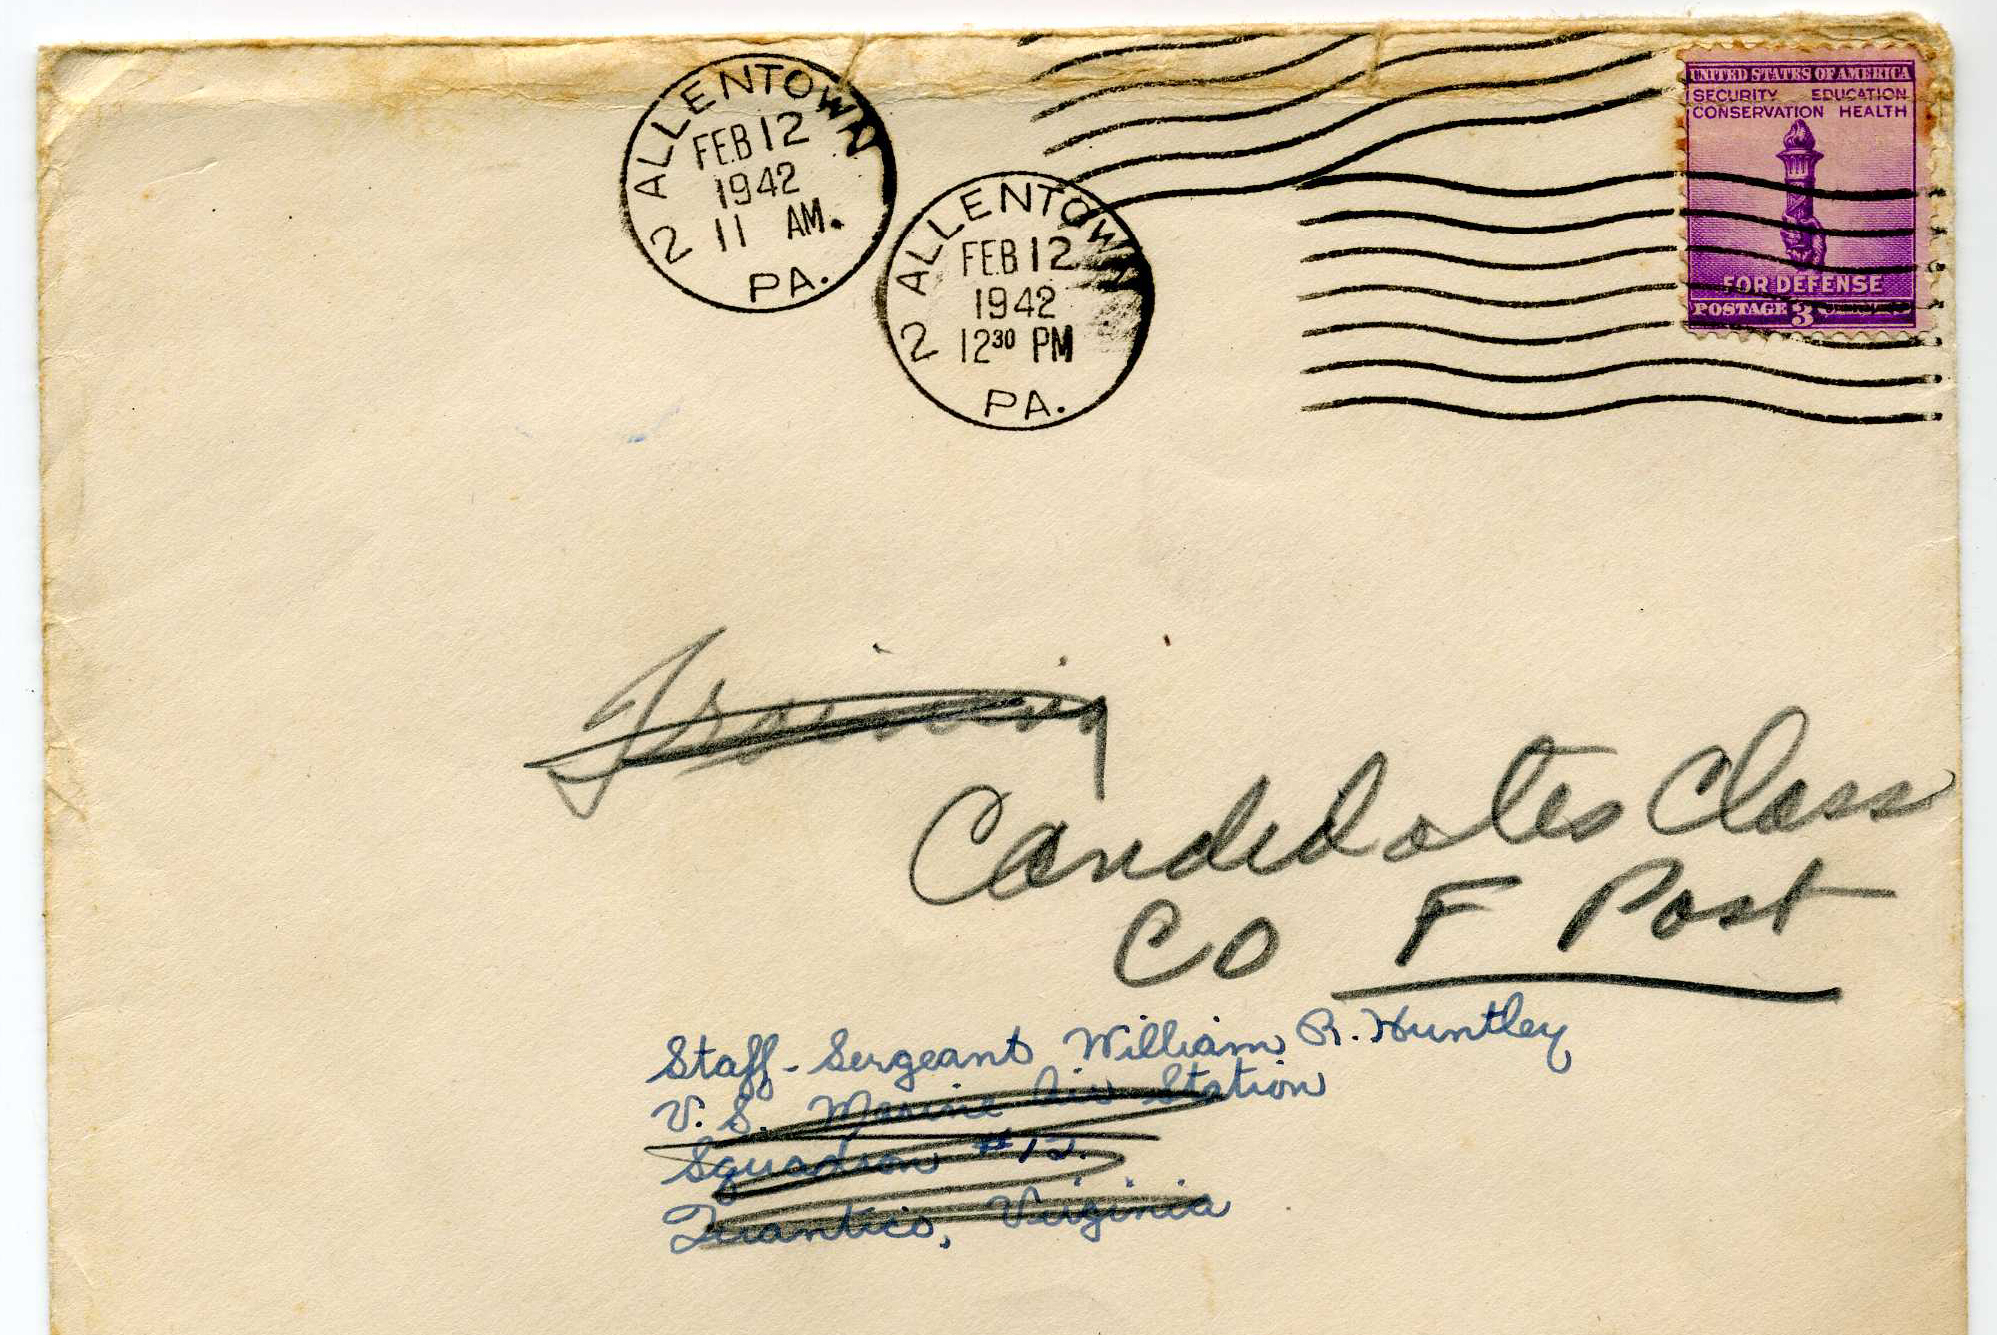 2 ALLENTOWN
FEB 12
1942
11 AM.
PA.
2 ALLENTOWN
FEB 12
1942
12 30 PM
PA.
UNITED STATES OF AMERICA
SECURITY EDUCATION
CONSERVATION HEALTH
FOR DEFENSE
POSTAGE 3
Training
Candidates Class
CO F Post
Staff-Sergeant William R. Huntley
U. S. Marine Air Station
Squadron #12.
Quantico, Virginia